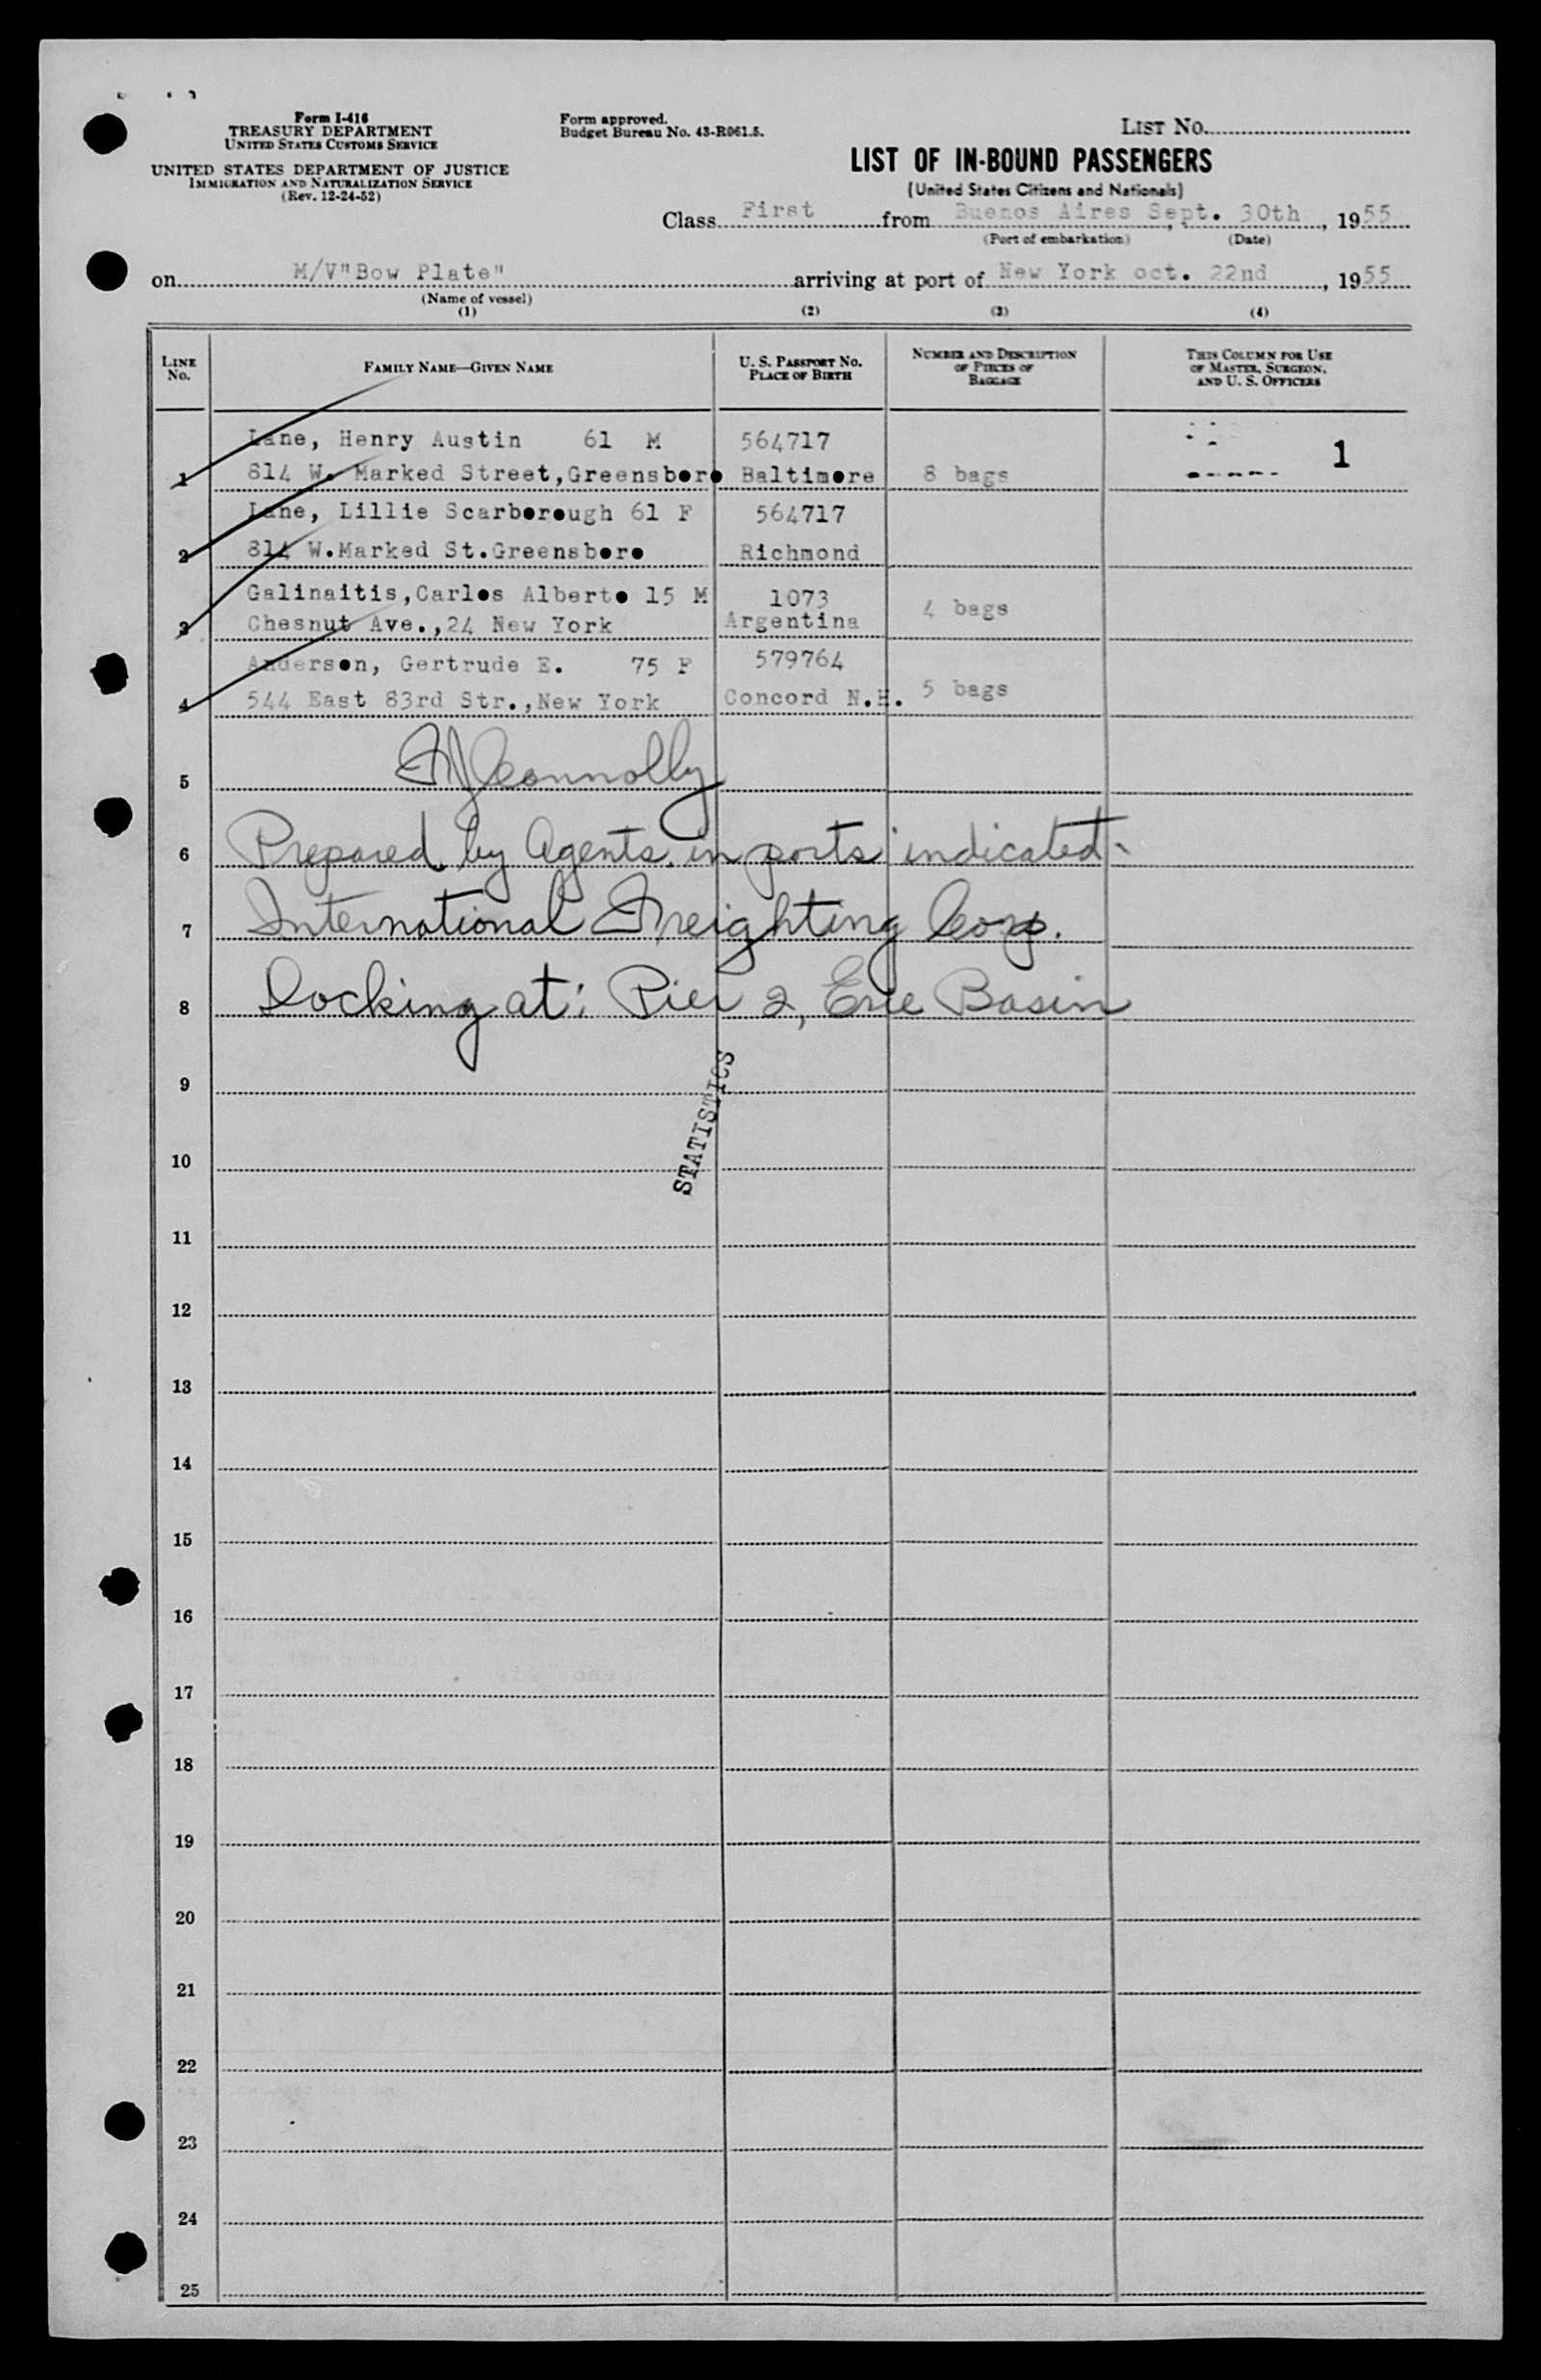 Form I-416
TREASURY DEPARTMENT
UNITED STATES CUSTOMS SERVICE
UNITED STATES DEPARTMENT OF JUSTICE
IMMIGRATION AND NATURALIZATION SERVICE
(Rev. 12-24-52)
Form approved.
Budget Bureau No. 43-R061.5.
LIST No.
LIST OF IN-BOUND PASSENGERS
(United States Citizens and Nationals)
Class First from Buenos Aires Sept. 30th, 1955
(Port of embarkation) (Date)
on M/V"Bow Plate" arriving at port of New York oct. 22nd, 1955
(Name of vessel)
(1) (2) (3) (4)
LINE No. FAMILY NAME—GIVEN NAME U. S. PASSPORT No. PLACE OF BIRTH NUMBER AND DESCRIPTION OF PIECES OF BAGGAGE THIS COLUMN FOR USE OF MASTER, SURGEON, AND U. S. OFFICERS
Lane, Henry Austin 61 M 564717 1
1 814 W. Marked Street,Greensboro Baltimore 8 bags
Lane, Lillie Scarborough 61 F 564717
2 814 W.Marked St.Greensboro Richmond
Galinaitis,Carlos Alberto 15 M 1073 4 bags
3 Chesnut Ave.,24 New York Argentina
Anderson, Gertrude E. 75 F 579764 5 bags
4 544 East 83rd Str.,New York Concord N.H.
5 Connolly
6 Prepared by Agents in ports indicated.
7 International Freighting Corp.
8 Docking at: Pier 2, Erie Basin
STATISTICS
9
10
11
12
13
14
15
16
17
18
19
20
21
22
23
24
25